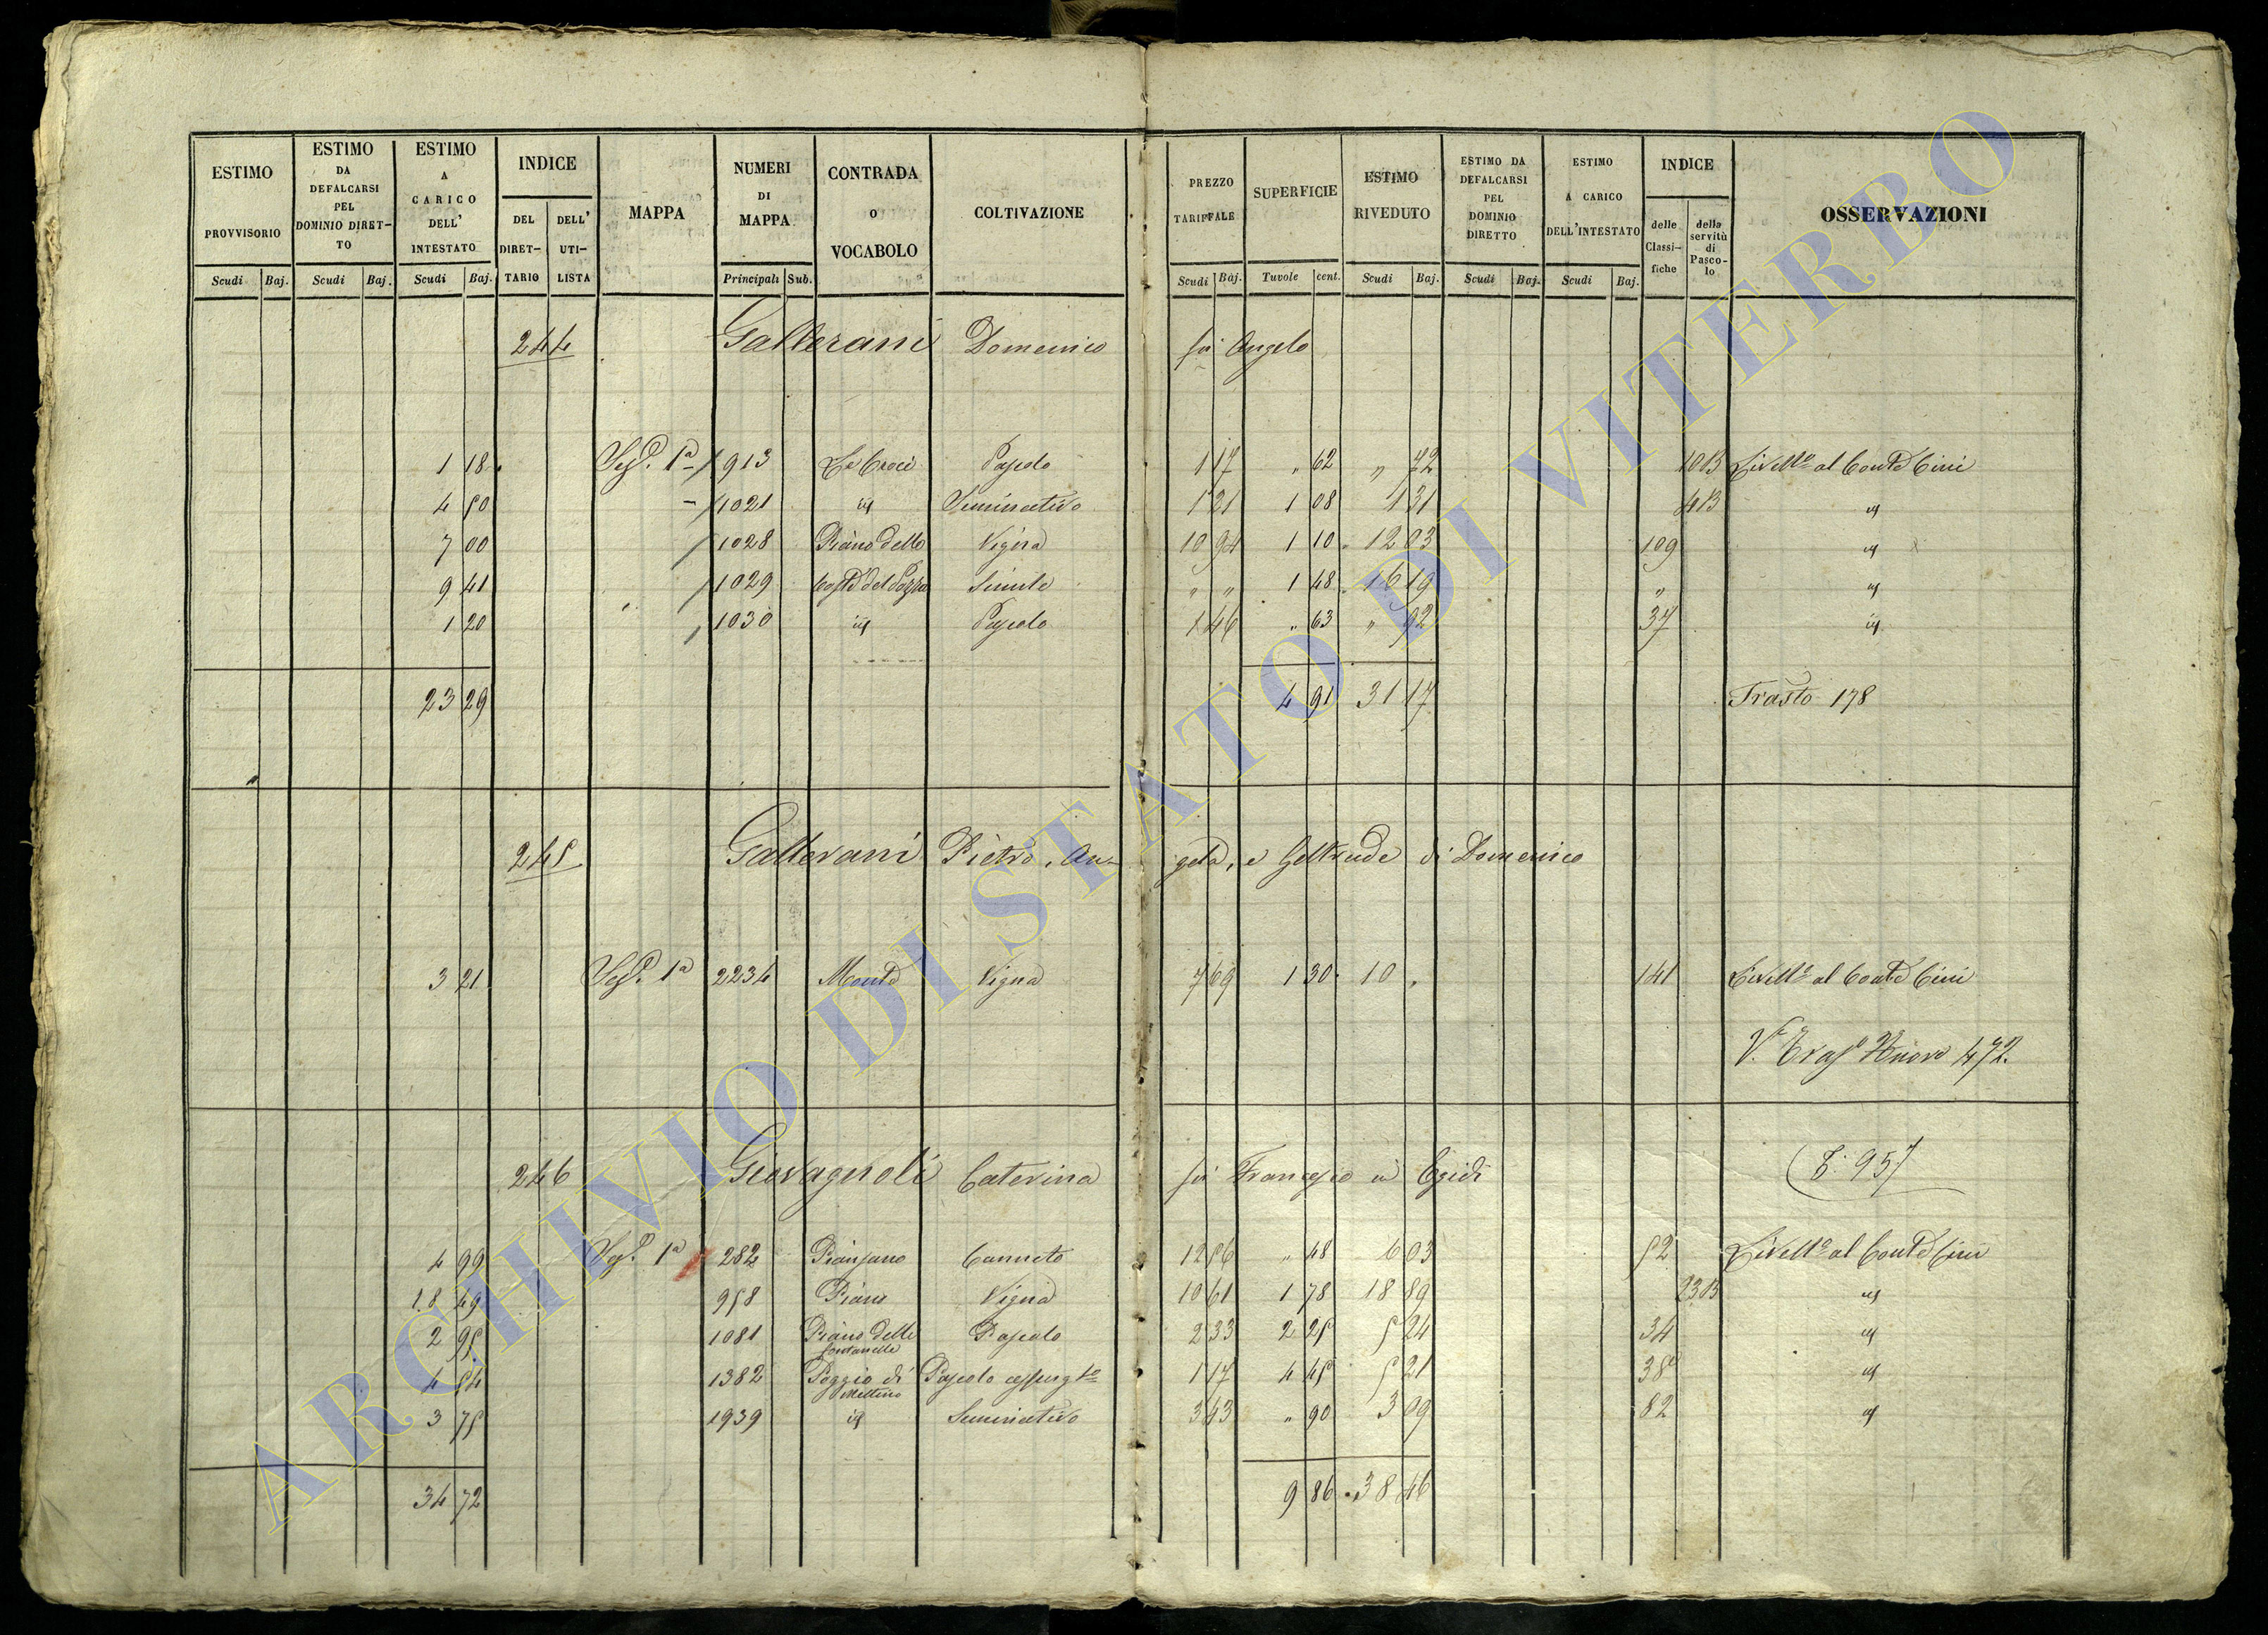 ESTIMO PROVVISORIO
Scudi Baj.
ESTIMO DA DEFALCARSI PEL DOMINIO DIRET-TO
Scudi Baj.
ESTIMO A CARICO DELL' INTESTATO
Scudi Baj.
INDICE
DEL DIRET-TARIO
DELL' UTI-LISTA
MAPPA
NUMERI DI MAPPA
Principali Sub.
CONTRADA O VOCABOLO
COLTIVAZIONE
PREZZO TARIFFALE
Scudi Baj.
SUPERFICIE
Tuvole cent.
ESTIMO RIVEDUTO
Scudi Baj.
ESTIMO DA DEFALCARSI PEL DOMINIO DIRETTO
Scudi Baj.
ESTIMO A CARICO DELL'INTESTATO
Scudi Baj.
INDICE
delle Classi-fiche
della servitù di Pasco-lo
OSSERVAZIONI
244 Gallerani Domenico fu Angelo
1 18 Sez. 1a 913 Le Croci Pascolo 1 17 " 62 " 72 10B Livello al Conte Cini
4 50 1021 id Seminativo 1 21 1 08 1 31 4B id
7 00 1028 Piano delle Vigna 10 94 1 10 12 03 109 id
9 41 1029 Coste del Pozzo Simile " " 1 48 16 19 " id
1 20 1030 id Pascolo 1 46 " 63 " 92 37 id
23 29 4 91 31 17 Trasto 178
245 Gallerani Pietro, An-gela, e Geltrude di Domenico
3 21 Sez. 1a 2234 Monte Vigna 7 69 1 30 10 " 141 Livello al Conte Cini
V. Trasp Nuovo 472.
246 Giovagnoli Caterina fu Francesco in Egidi
4 99 Sez. 1a 282 Pianzano Canneto 12 56 " 48 6 03 52 Livello al Conte Cini
18 49 958 Piano Vigna 10 61 1 78 18 89 23B id
2 95 1081 Piano delle fontanelle Pascolo 2 33 2 25 5 24 34 id
4 54 1382 Poggio di Pascolo cespugto 1 17 4 45 5 21 38 id
3 75 1939 id Seminativo 3 43 " 90 3 09 82 id
34 72 9 86 38 46
ARCHIVIO DI STATO DI VITERBO